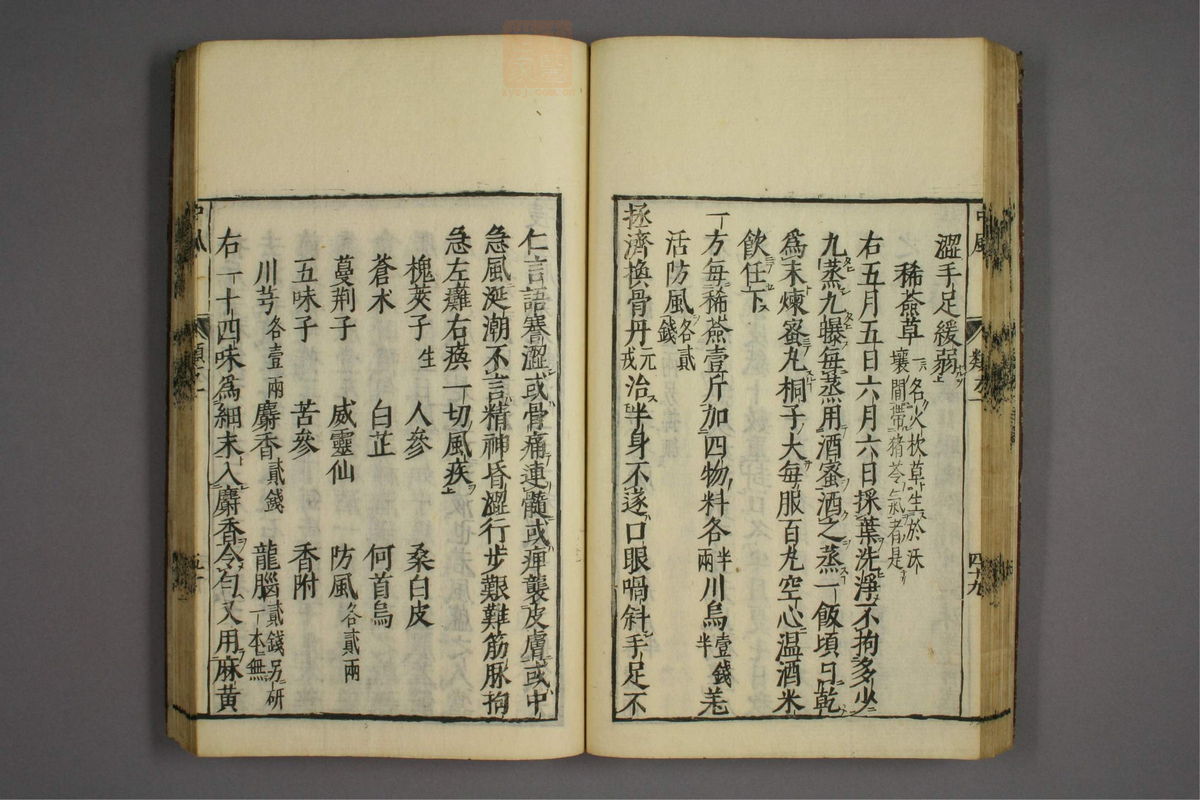 澀手足緩弱
稀薟草一名火杴草生於沃
壤間帶猪苓氣者是
右五月五日六月六日採葉洗淨不拘多少
九蒸九曝每蒸用酒蜜酒之蒸一飯頃日乾
爲末煉蜜丸桐子大每服百丸空心温酒米
飲任下
一方每稀薟壹斤加四物料各半兩川烏壹錢半羌
活防風各貳錢
拯濟換骨丹元戎治半身不遂口眼喎斜手足不
仁言語蹇澀或骨痛連髓或痺襲皮膚或中
急風涎潮不言精神昏澀行步艱難筋脉拘
急左癱右瘓一切風疾
槐莢子生 人參 桑白皮
蒼木 白芷 何首烏
蔓荆子 威靈仙 防風各貳兩
五味子 苦參 香附
川芎各壹兩 麝香貳錢 龍腦貳錢另研一本無
右一十四味爲細末入麝香令匀又用麻黄
中風 類之一 四十九
類之一 五十